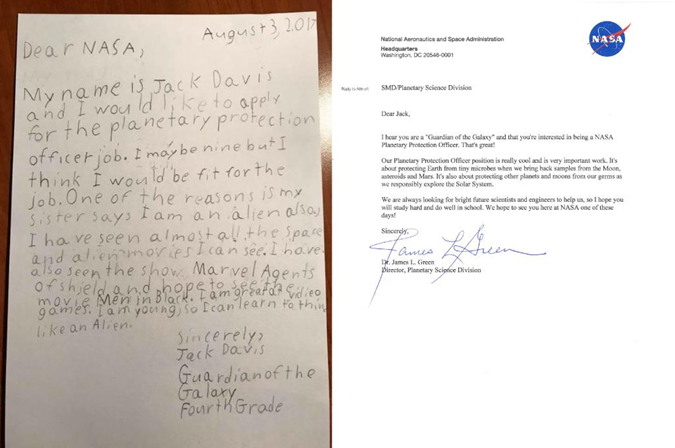 August 3, 2017
Dear NASA,
My name is Jack Davis
and I would like to apply
for the planetary protection
officer job. I may be nine but I
think I would be fit for the
job. One of the reasons is my
sister says I am an alien also,
I have seen almost all the space
and alien movies I can see. I have
also seen the show Marvel Agents
of shield and hope to see the
movie Men in Black. I am great at video
games. I am young, so I can learn to think
like an Alien.
Sincerely,
Jack Davis
Guardian of the
Galaxy
Fourth Grade
National Aeronautics and Space Administration
Headquarters
Washington, DC 20546-0001
NASA
Reply to Attn of:
SMD/Planetary Science Division
Dear Jack,
I hear you are a "Guardian of the Galaxy" and that you're interested in being a NASA
Planetary Protection Officer. That's great!
Our Planetary Protection Officer position is really cool and is very important work. It's
about protecting Earth from tiny microbes when we bring back samples from the Moon,
asteroids and Mars. It's also about protecting other planets and moons from our germs as
we responsibly explore the Solar System.
We are always looking for bright future scientists and engineers to help us, so I hope you
will study hard and do well in school. We hope to see you here at NASA one of these
days!
Sincerely,
James L Green
Dr. James L. Green
Director, Planetary Science Division